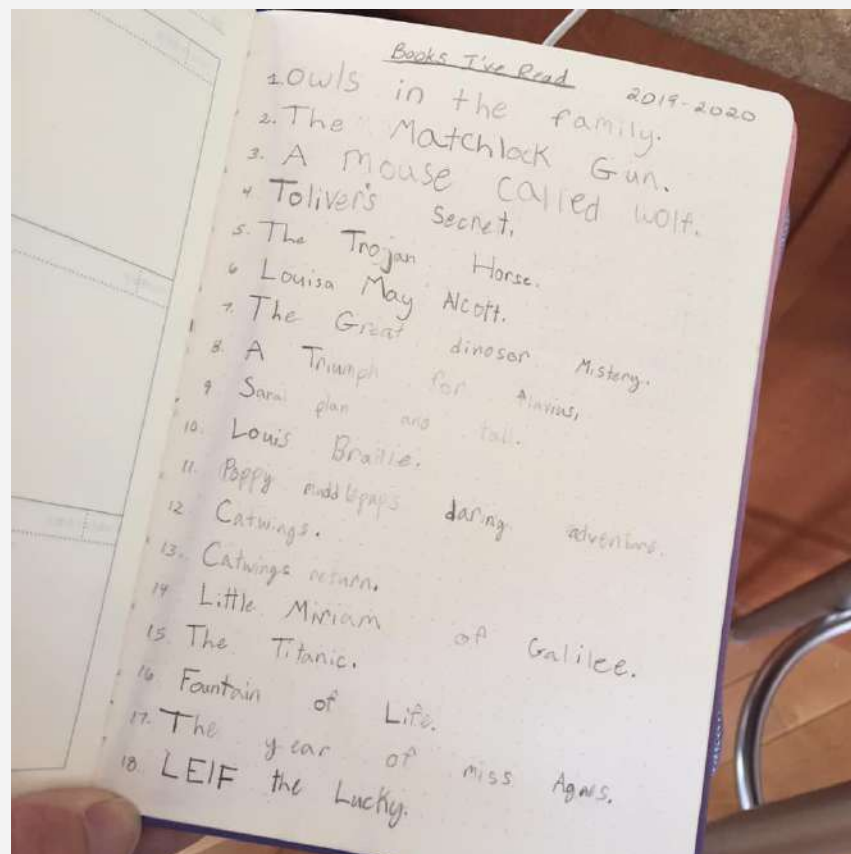 Books I've Read 2019-2020
1. Owls in the family.
2. The Matchlock Gun.
3. A mouse called wolf.
4 Toliver's Secret.
5. The Trojan Horse.
6 Louisa May Alcott.
7. The Great dinosor Mistery.
8. A Triumph for Flavius.
9 Sarai plan and tall.
10. Louis Braille.
11. Poppy daring adventure.
12 Catwings.
13. Catwings return.
14 Little Miriam of Galilee.
15. The Titanic.
16 Fountain of Life.
17. The year of miss Agnes.
18. LEIF the Lucky.